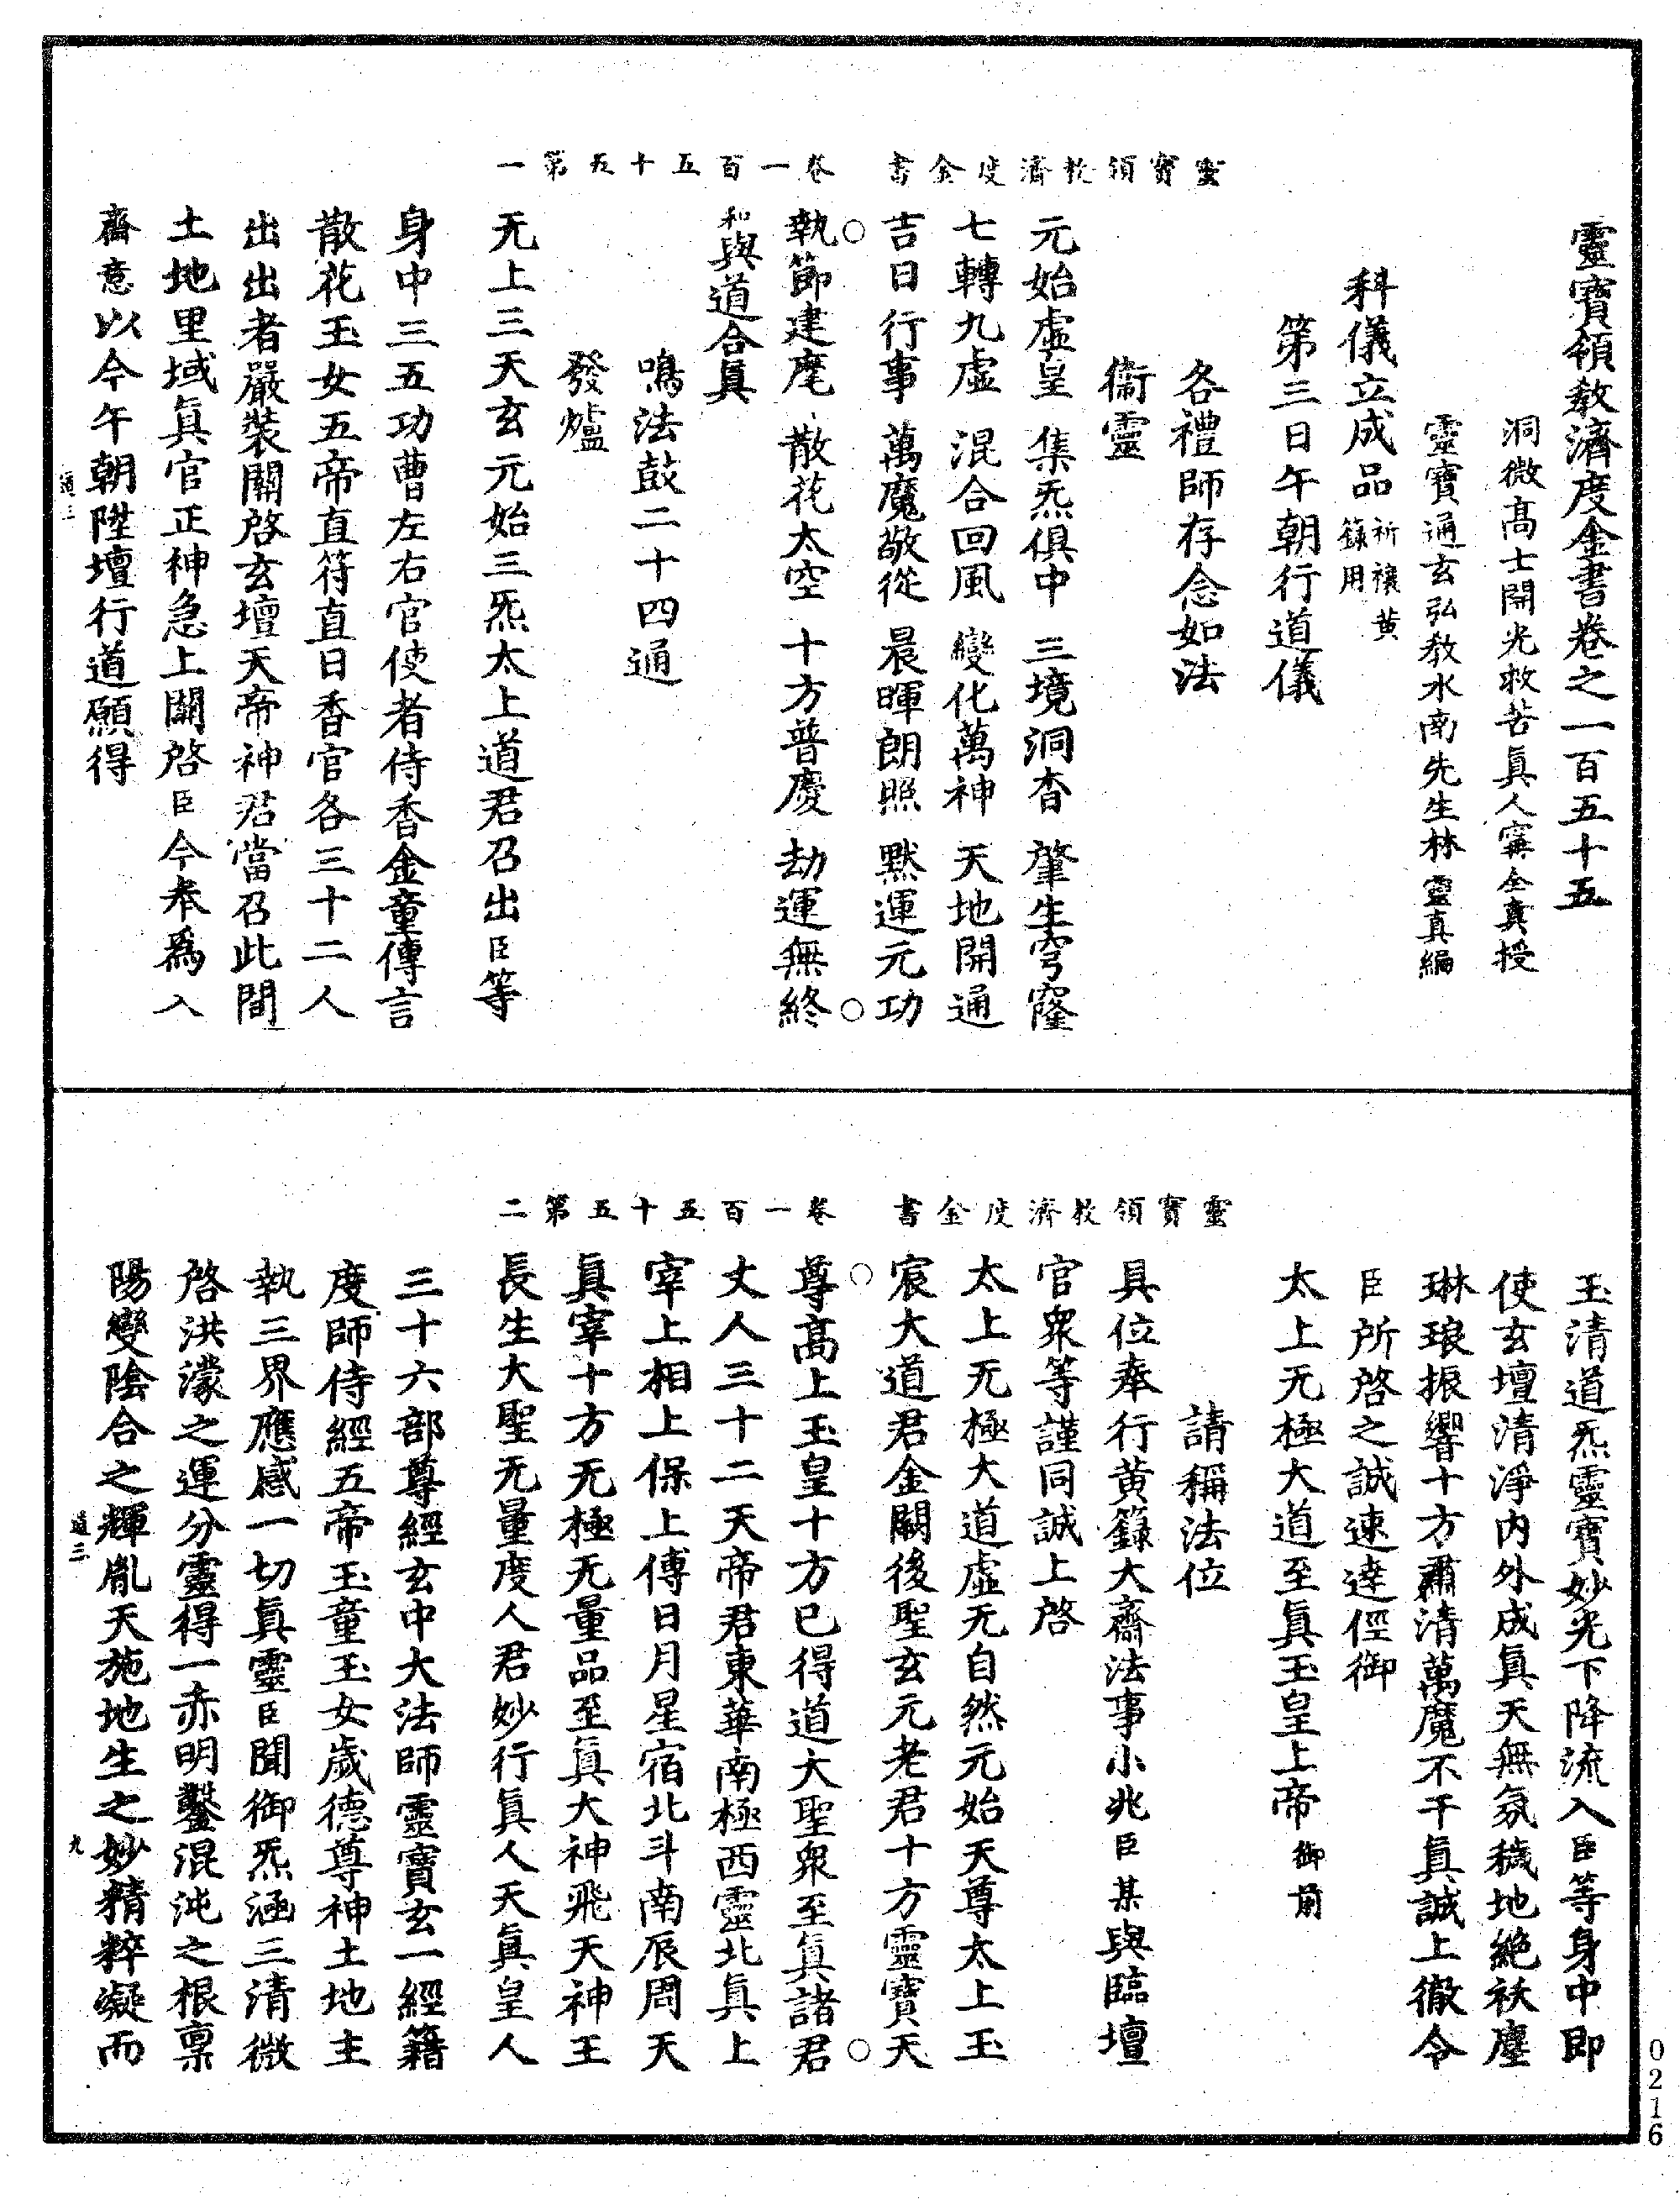 靈寶領教濟度金書卷之一百五十五
洞微高士開光救苦真人寗全真授
靈寶通玄弘教水南先生林靈真編
科儀立成品祈禳黃籙用
第三日午朝行道儀
各禮師存念如法
衞靈
靈寶領教濟度金書
卷一百五十五第一
元始虛皇　集炁俱中　三境洞杳　肇生穹窿
七轉九虛　混合回風　變化萬神　天地開通
吉日行事　萬魔敬從　晨暉朗照　默運元功
執節建麾　散花太空　十方普慶　劫運無終
和與道合眞
鳴法鼓二十四通
發爐
无上三天玄元始三炁太上道君召出臣等
身中三五功曹左右官使者侍香金童傳言
散花玉女五帝直符直日香官各三十二人
出出者嚴裝關啓玄壇天帝神君當召此間
土地里域眞官正神急上關啓臣今奉爲入
齋意以今午朝陞壇行道願得
通三
玉清道炁靈寶妙光下降流入臣等身中即
使玄壇清淨內外成眞天無氛穢地絕袄塵
琳琅振響十方肅清萬魔不干眞誠上徹令
臣所啓之誠速達徑御
太上无極大道至眞玉皇上帝御前
請稱法位
具位奉行黃籙大齋法事小兆臣某與臨壇
官衆等謹同誠上啓
靈寶領教濟度金書
卷一百五十五第二
太上无極大道虛无自然元始天尊太上玉
宸大道君金闕後聖玄元老君十方靈寶天
尊高上玉皇十方已得道大聖衆至眞諸君
丈人三十二天帝君東華南極西靈北眞上
宰上相上保上傅日月星宿北斗南辰周天
眞宰十方无極无量品至眞大神飛天神王
長生大聖无量度人君妙行眞人天眞皇人
三十六部尊經玄中大法師靈寶玄一經籍
度師侍經五帝玉童玉女歲德尊神土地主
執三界應感一切眞靈臣聞御炁涵三清微
啓洪濛之運分靈得一赤明鑿混沌之根稟
陽變陰合之輝胤天施地生之妙精粹凝而
通三
九
0216